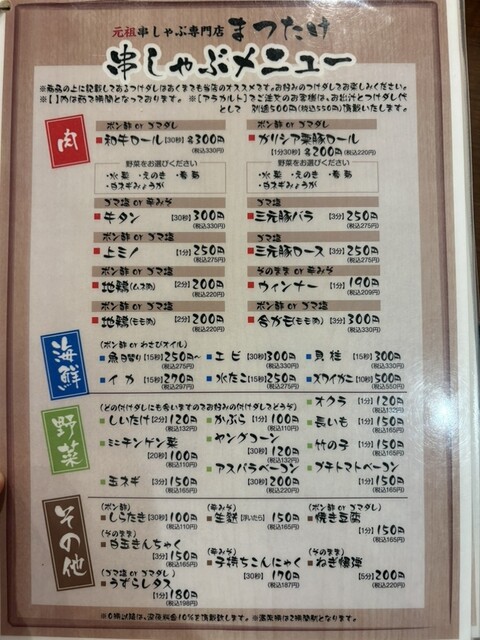 元祖串しゃぶ専門店 まつたけ
串しゃぶメニュー
※商品の上に記載してあるつけダレはあくまでも当店のオススメです。お好みのつけダレでお楽しみください。
※【 】内は茹で時間となっております。 ※【アラカルト】でご注文のお客様は、お出汁とつけダレ代
として 別途500円(税込550円)頂戴いたします。
肉
ポン酢 or ゴマダレ
和牛ロール【30秒】各300円
(税込330円)
野菜をお選びください
・水菜 ・えのき ・春菊
・白ネギみょうが
ポン酢 or ゴマダレ
ガリシア栗豚ロール
【1分30秒】各200円(税込220円)
野菜をお選びください
・水菜 ・えのき ・春菊
・白ネギみょうが
ゴマ塩 or 辛みそ
牛タン【30秒】300円
(税込330円)
ゴマ塩
三元豚バラ【3分】250円
(税込275円)
ポン酢 or ゴマ塩
上ミノ【1分】250円
(税込275円)
ゴマ塩
三元豚ロース【3分】250円
(税込275円)
ポン酢 or ゴマ塩
地鶏(ムネ肉)【2分】200円
(税込220円)
そのまま or 辛みそ
ウィンナー【1分】190円
(税込209円)
ポン酢 or ゴマ塩
地鶏(もも肉)【2分】200円
(税込220円)
ポン酢 or ゴマ塩
合がも(もも肉)【3分】300円
(税込330円)
海鮮
(ポン酢 or わさびオイル)
魚日替り【15秒】250円~
(税込275円)
エビ【30秒】300円
(税込330円)
貝柱【15秒】300円
(税込330円)
イカ【15秒】270円
(税込297円)
水たこ【15秒】250円
(税込275円)
ズワイガニ【10秒】500円
(税込550円)
野菜
(どの付けダレにも合いますのでお好みの付けダレでどうぞ)
しいたけ【2分】120円
(税込132円)
かぶら【1分】100円
(税込110円)
オクラ【1分】120円
(税込132円)
ミニチンゲン菜
【20秒】100円
(税込110円)
ヤングコーン
【30秒】120円
(税込132円)
長いも【1分】150円
(税込165円)
竹の子【1分】150円
(税込165円)
玉ネギ【3分】150円
(税込165円)
アスパラベーコン
【30秒】200円
(税込220円)
プチトマトベーコン
【1分】150円
(税込165円)
その他
(ポン酢)
しらたき【30秒】100円
(税込110円)
(辛みそ)
生麩【浮いたら】150円
(税込165円)
(ポン酢 or ゴマダレ)
焼き豆腐
【1分】150円
(税込165円)
(そのまま)
白玉きんちゃく
【3分】150円
(税込165円)
(辛みそ)
子持ちこんにゃく
【30秒】170円
(税込187円)
(そのまま)
ねぎ爆弾
【5分】200円
(税込220円)
(ゴマ塩 or ゴマダレ)
うずらレタス
【1分】180円
(税込198円)
※0時以降は、深夜料金10%を頂戴致します。 ※満席時は2時間制となります。